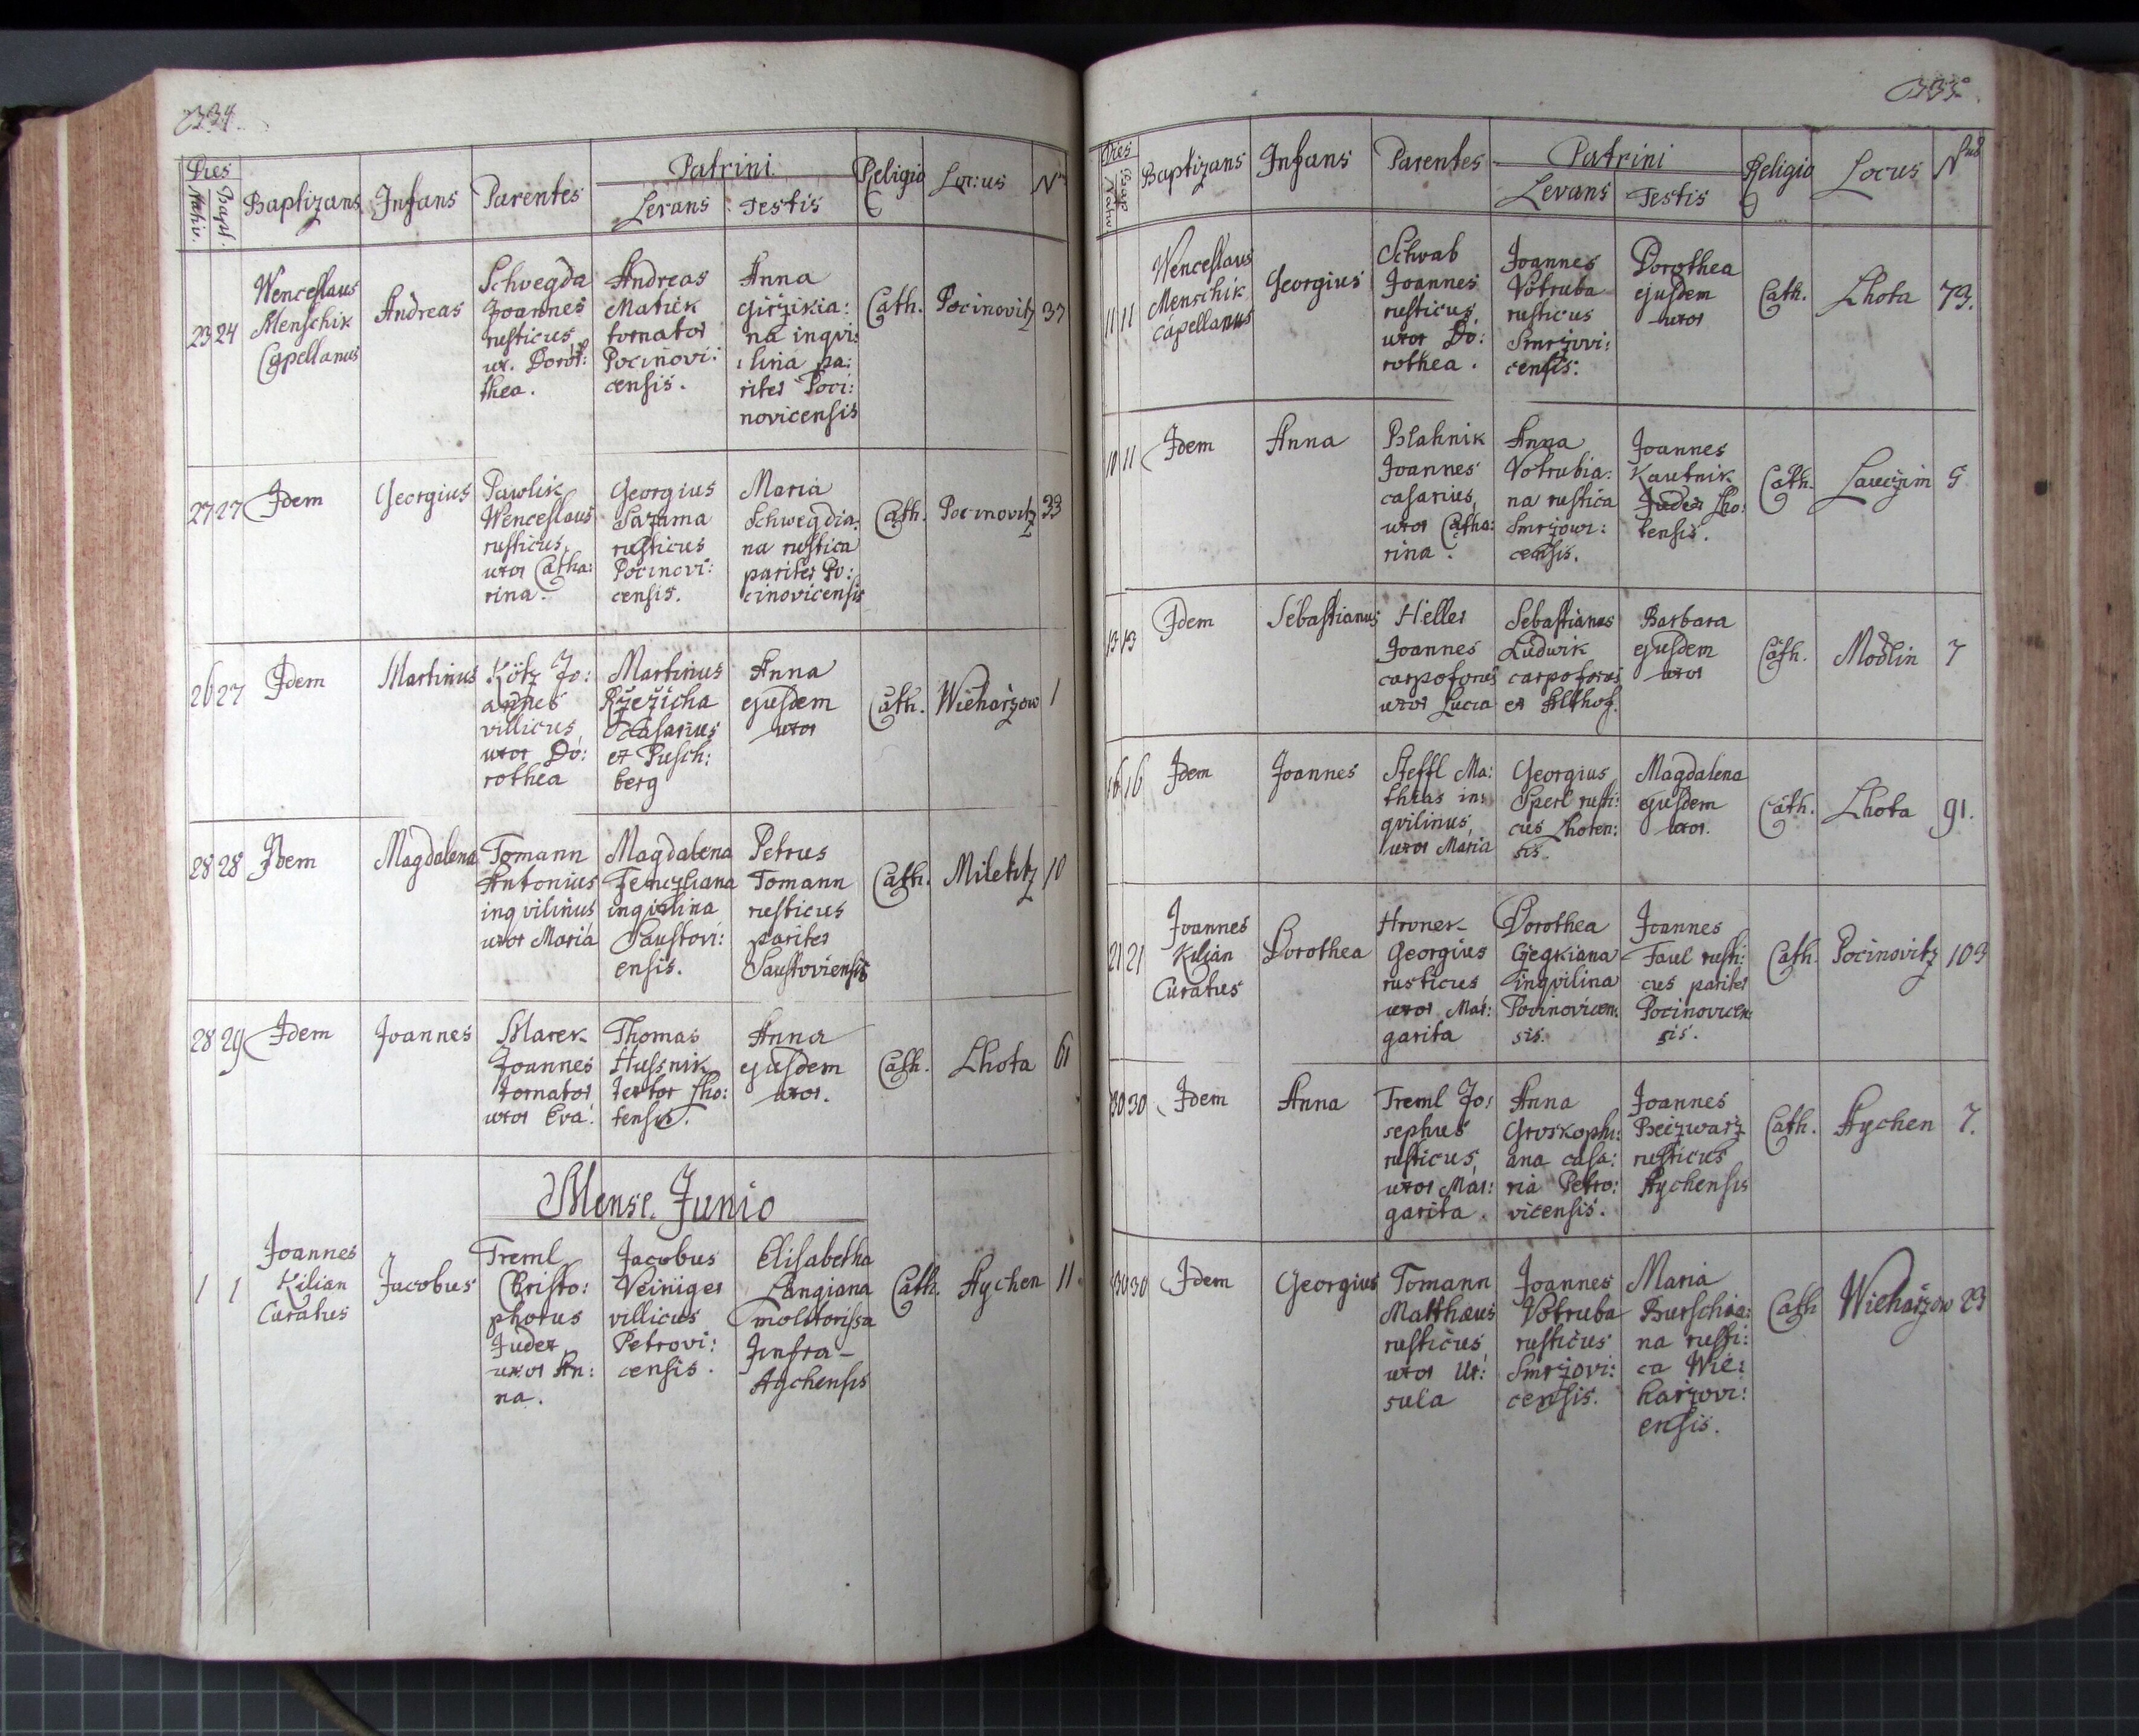 334.
Dies
Nativ.
Bapt.
Baptizans
Infans
Parentes
Patrini
Levans
Testis
Religio
Locus
23
24
Wenceslaus
Menschik
Capellanus
Andreas
Schwegda
Joannes
rusticus
ux. Doro:
thea.
Andreas
tornator
Pocinovi:
censis.
Anna
na inqvi:
lina pa:
riter Poci:
novicensis
Cath.
Pocinovitz
37
27
27
Idem
Georgius
Pawlik
Wenceslaus
rusticus,
uxor Catha:
rina.
Georgius
Sazama
rusticus
Pocinovi:
censis.
Maria
Schwegdia:
na rustica
pariter Po:
cinovicensis
Cath.
Pocinovitz
33
26
27
Idem
Martinus
Kötz Jo:
annes
villicus,
uxor Do:
rothea
Martinus
Casarius
et Pusch:
berg
Anna
ejusdem
uxor
Cath.
Wieharzow
1
28
28
Idem
Magdalena
Tomann
Antonius
inqvilinus
uxor Maria
Magdalena
inqvilina
ensis.
Petrus
Tomann
rusticus
pariter
Cath.
Miletitz
10
28
29
Idem
Joannes
Marek
Joannes
tornator
uxor Eva.
Thomas
Hussnik
textor Lho:
tensis.
Anna
ejusdem
uxor.
Cath.
Lhota
61
Mense Junio
1
1
Joannes
Kilian
Curatus
Jacobus
Treml
Christo:
phorus
Judex
uxor An:
na.
Jacobus
Veiniger
villicus
Petrovi:
censis.
Elisabetha
Langiana
molitorissa
Infra-
Aychensis
Cath.
Aychen
11.
335.
Dies
Baptizans
Infans
Parentes
Patrini
Levans
Testis
Religio
Locus
11
11
Wenceslaus
Menschik
capellanus
Georgius
Schwab
Joannes
rusticus,
uxor Do:
rothea.
Joannes
Votruba
rusticus
Smrzovi:
censis.
Dorothea
ejusdem
uxor
Cath.
Lhota
73.
10
11
Idem
Anna
Blahnik
Joannes
casarius,
uxor Catha:
rina.
Anna
Votrubia:
na rustica
Smrzowi:
censis.
Joannes
Kautnik
Judex Lho:
tensis.
Cath.
5
13
13
Idem
Sebastianus
Heller
Joannes
carpoforus
uxor Lucia
Sebastianus
Ludwik
carpoforus
ex Althof.
Barbara
ejusdem
uxor
Cath.
Modlin
7
16
16
Idem
Joannes
Steffl Ma:
thias in:
qvilinus,
uxor Maria
Georgius
Sperl rusti:
cus Lhoten:
sis.
Magdalena
ejusdem
uxor.
Cath.
Lhota
91.
21
21
Joannes
Kilian
Curatus
Dorothea
Hroner
Georgius
rusticus
uxor Mar:
garita
Dorothea
inqvilina
Pocinovicen:
sis.
Joannes
Faul rusti:
cus pariter
Pocinovicen:
sis.
Cath.
Pocinovitz
103
30
30
Idem
Anna
Treml Jo:
sephus
rusticus,
uxor Mar:
garita.
Anna
Groskophi:
ana casa:
ria Petro:
vicensis.
Joannes
rusticus
Aychensis
Cath.
Aychen
7.
30
30
Idem
Georgius
Tomann
Matthaeus
rusticus,
uxor Ur:
sula
Joannes
Votruba
rusticus
Smrzovi:
censis.
Maria
na rusti:
ca Wie:
harzovi:
ensis.
Cath
Wieharzow
23